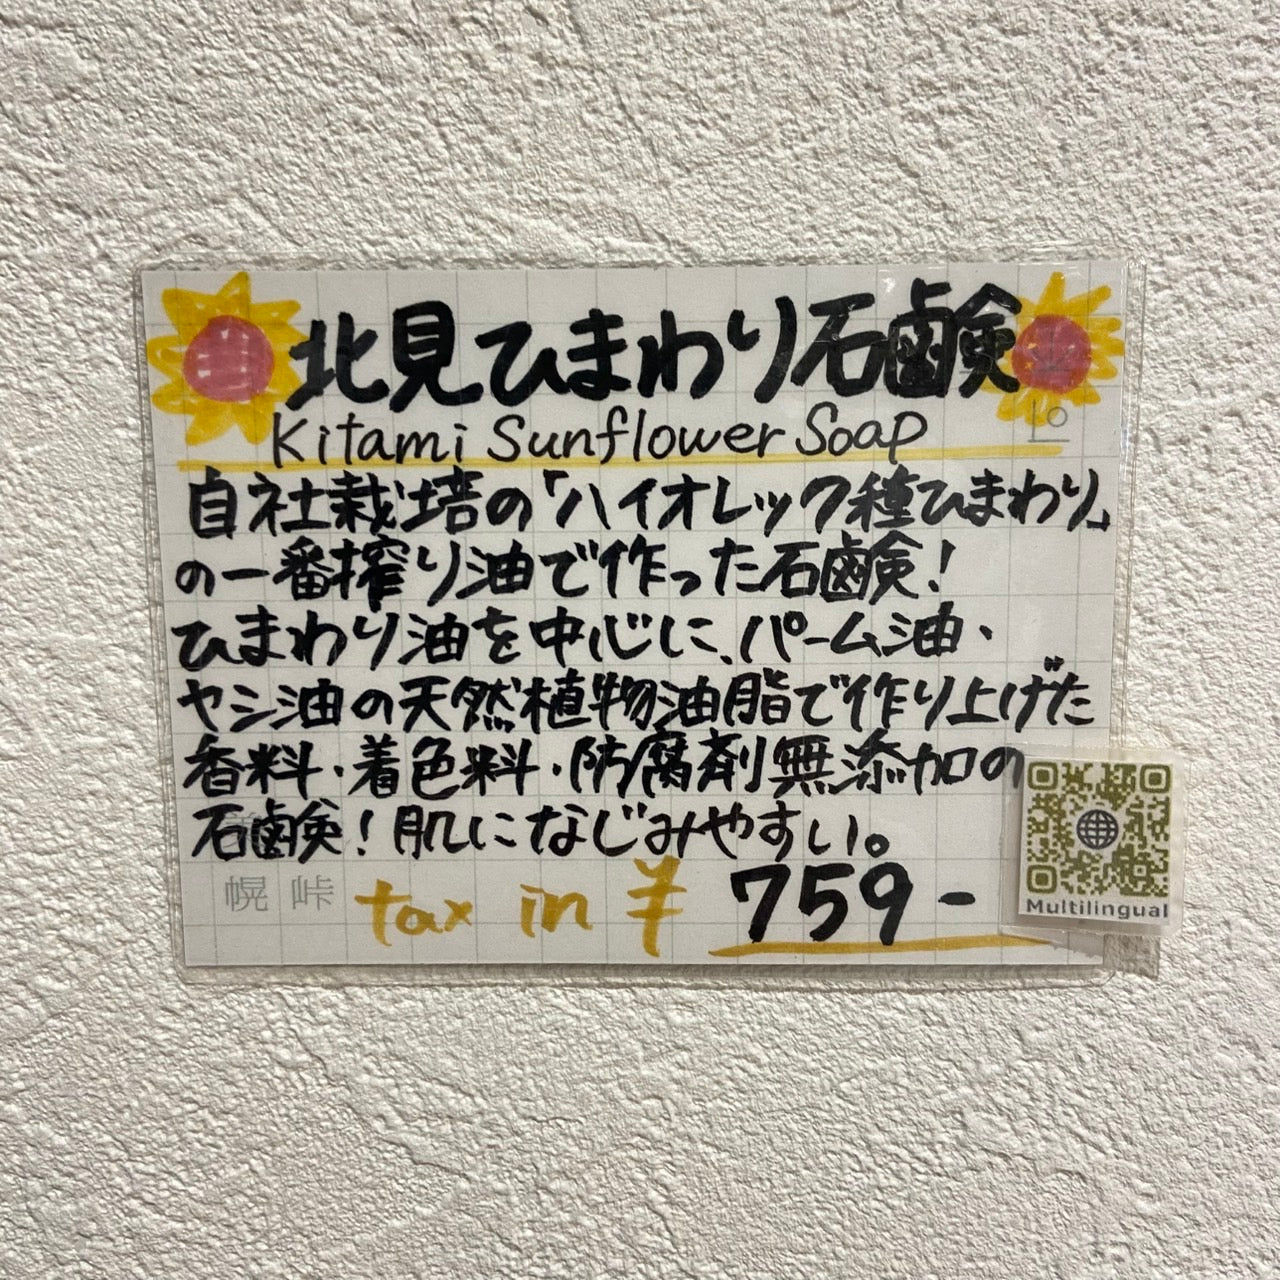 北見ひまわり石鹸
Kitami Sunflower Soap
自社栽培の「ハイオレック種ひまわり」
の一番搾り油で作った石鹸!
ひまわり油を中心に、パーム油、
ヤシ油の天然植物油脂で作り上げた
香料・着色料・防腐剤無添加の
石鹸!肌になじみやすい。
幌 峠
tax in ¥ 759-
Multilingual